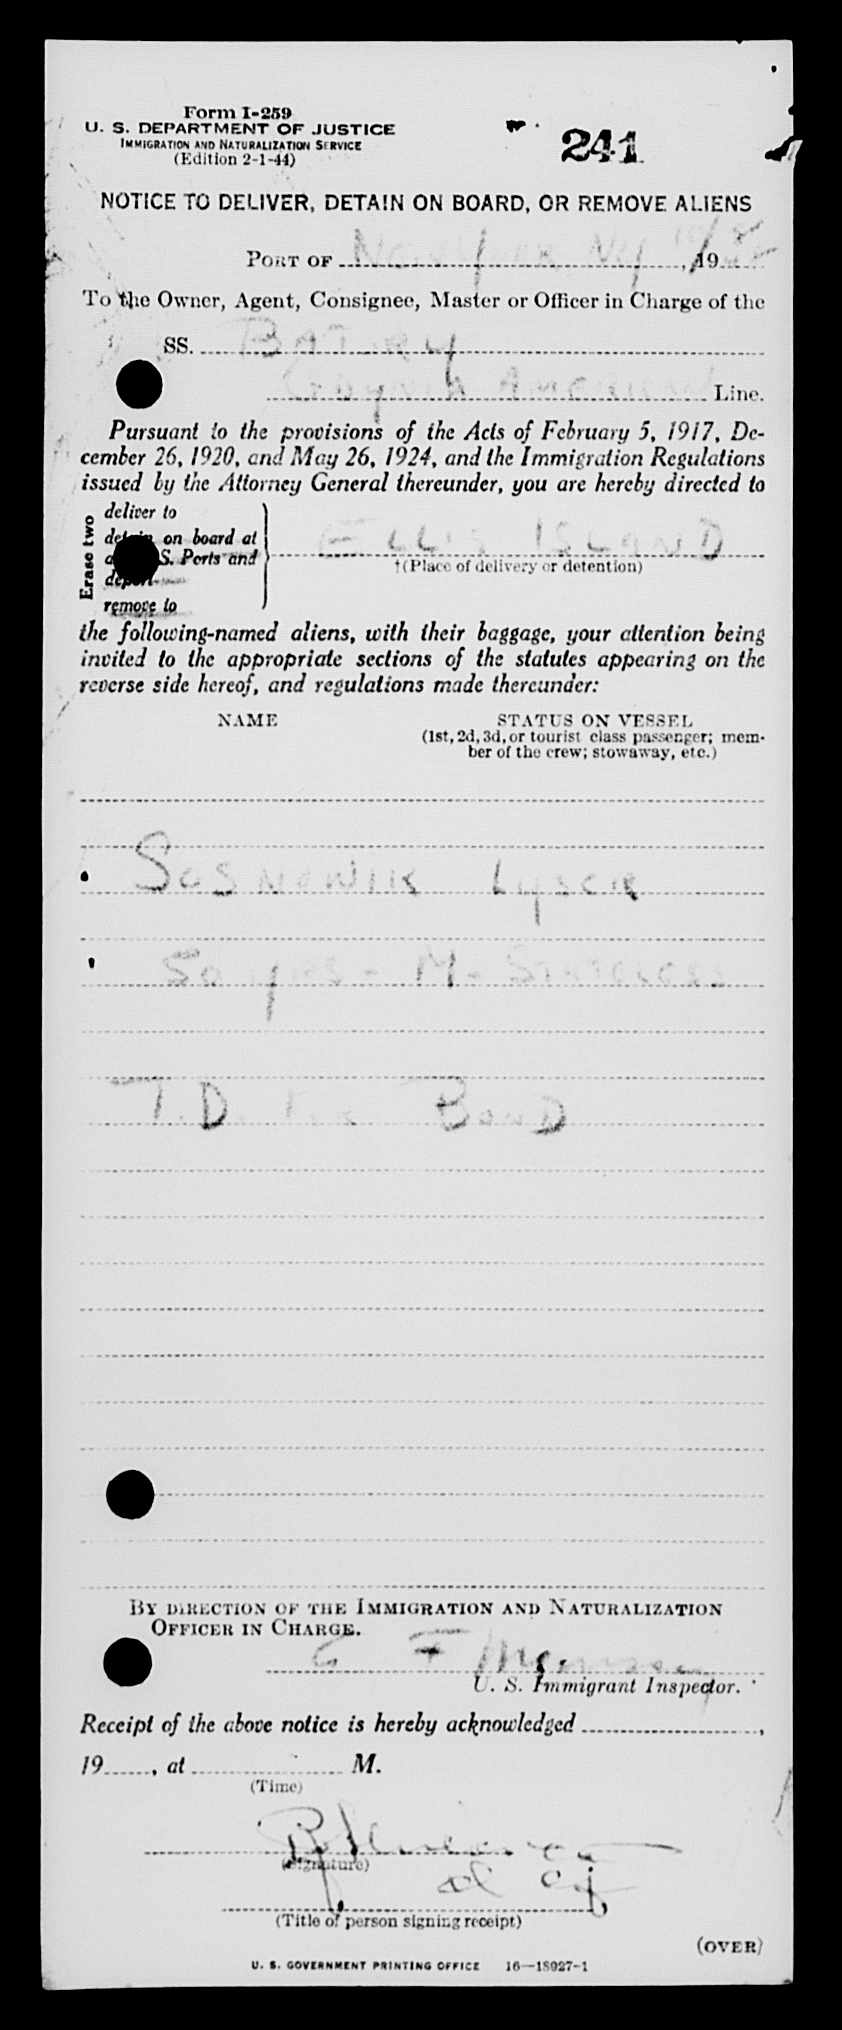 Form I-259
U. S. DEPARTMENT OF JUSTICE
IMMIGRATION AND NATURALIZATION SERVICE
(Edition 2-1-44)
241
NOTICE TO DELIVER, DETAIN ON BOARD, OR REMOVE ALIENS
PORT OF New York NY , 19
To the Owner, Agent, Consignee, Master or Officer in Charge of the
SS. Batory
Gdynia America Line.
Pursuant to the provisions of the Acts of February 5, 1917, De-
cember 26, 1920, and May 26, 1924, and the Immigration Regulations
issued by the Attorney General thereunder, you are hereby directed to
Erase two
deliver to
detain on board at
S. Ports and
deport
remove to
ELLIS ISLAND
†(Place of delivery or detention)
the following-named aliens, with their baggage, your attention being
invited to the appropriate sections of the statutes appearing on the
reverse side hereof, and regulations made thereunder:
NAME
STATUS ON VESSEL
(1st, 2d, 3d, or tourist class passenger; mem-
ber of the crew; stowaway, etc.)
50 yrs - M - Stateless
T.D. For Bond
BY DIRECTION OF THE IMMIGRATION AND NATURALIZATION
OFFICER IN CHARGE.
U. S. Immigrant Inspector.
Receipt of the above notice is hereby acknowledged ,
19 , at M.
(Time)
(Signature)
(Title of person signing receipt)
(OVER)
U. S. GOVERNMENT PRINTING OFFICE 16—18927-1